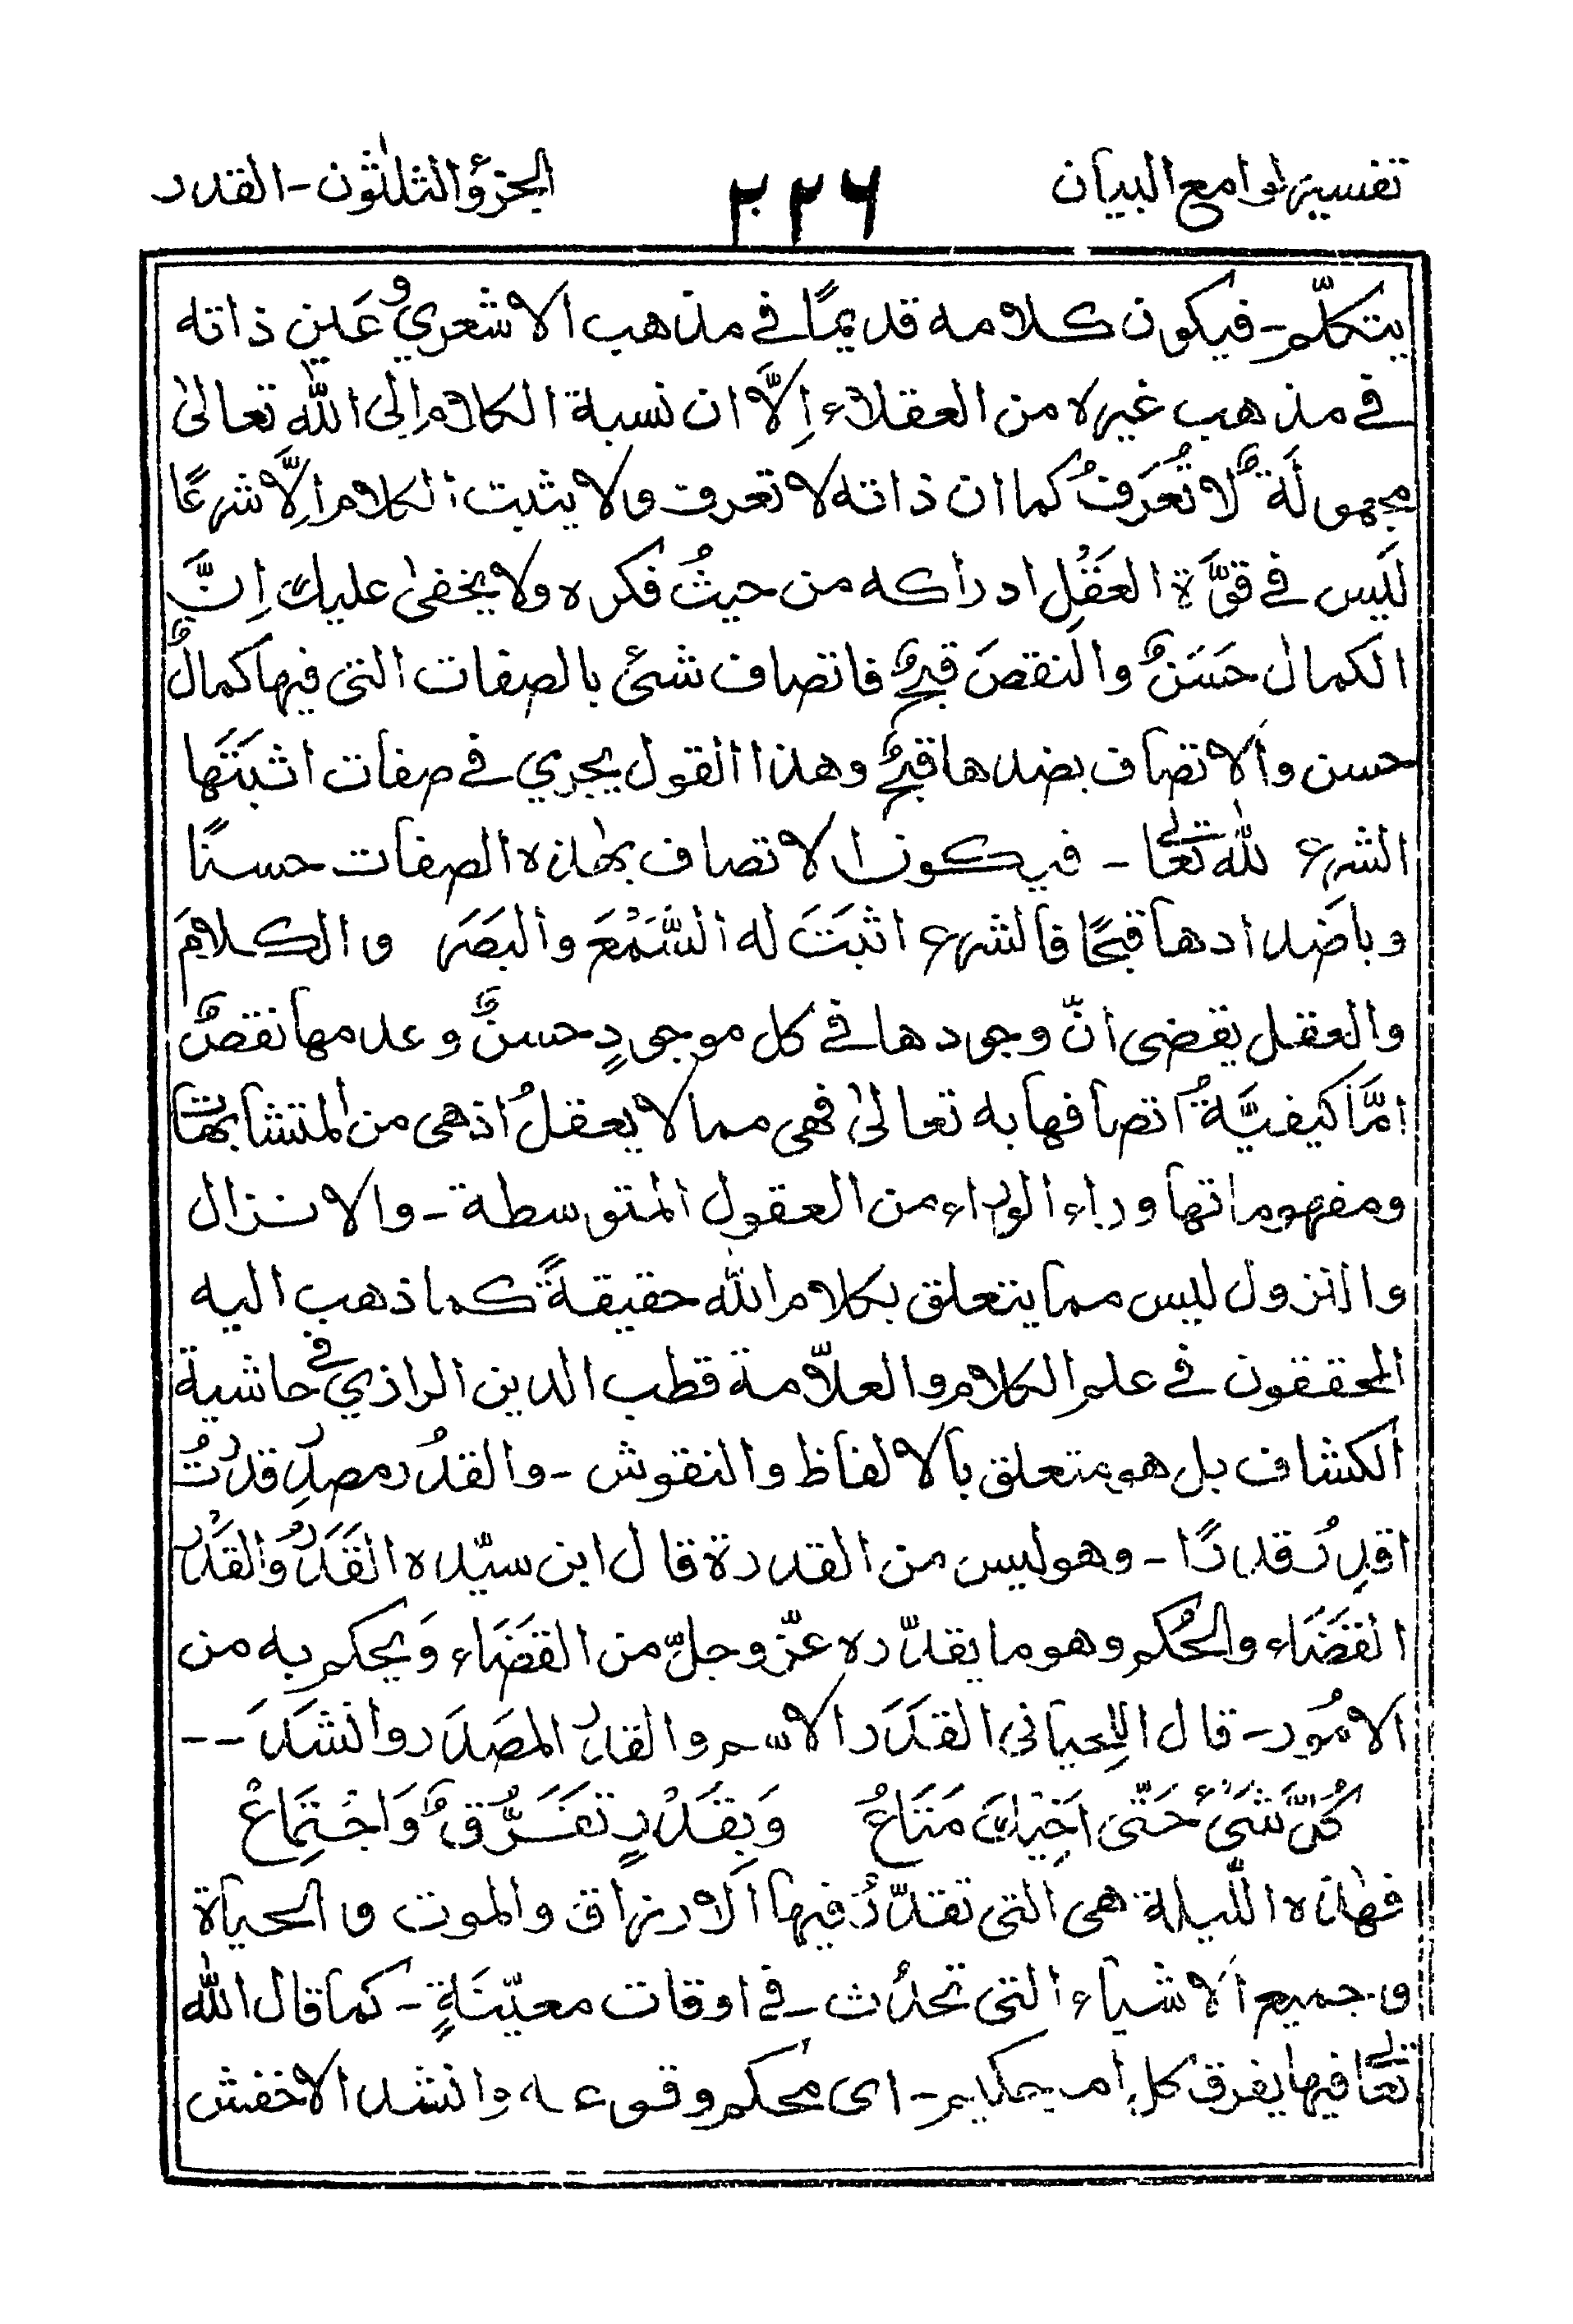 تفسير لوامع البيان
٢٢٦
الجزؤ الثلثون - القدر
يتكلّم - فيكون كلامه قديمًا في مذهب الاشعري و عَين ذاته
في مذهب غيره من العقلاء اِلَّا ان نسبة الكلام الى الله تعالىٰ
مجهولَةٌ لَا تُعرَفُ كما ان ذاته لا تعرف ولا يثبت الكلام اِلَّا شرعًا
لَيس في قوَّة العَقْلِ ادراكه من حيثُ فكره ولا يخفىٰ عليك اِنَّ
الكمال حَسَنٌ والنقصَ قبيحٌ فاتصاف شئ بالصفات التى فيها كمالٌ
حسن والاتصاف بضدها قبيحٌ وهذا القول يجري في صفات اثبَتَها
الشرع لله تعالى - فيكون الاتصاف بهذه الصفات حسنًا
وباضدادها قبيحًا فالشرع اثبَتَ له السَّمْعَ والبَصَر و الكلامَ
والعقل يقضى انّ وجودها في كل موجودٍ حسنٌ وعدمها نقصٌ
امَّا كيفيَّةُ اتصافها به تعالىٰ فهى مما لا يعقلُ اذ هى من المتشابهات
ومفهوماتها وراء الوراء من العقول المتوسطة - والانزال
والنزول ليس مما يتعلق بكلام الله حقيقةً كما ذهب اليه
المحققون في علم الكلام والعلّامة قطب الدين الرازي في حاشية
الكشاف بل هو متعلق بالالفاظ والنقوش - والقدرُ مصدر قدرتُ
اقدِرُ قدرًا - وهو ليس من القدرة قال ابن سيّده القَدَرُ وَالقَدْرُ
القَضَاء والحُكم وهو ما يقدّره عزّ وجلّ من القضَاء وَيحكم به من
الامُور - قال اللحيانى القدَر الاسم والقدْر المصدَر وانشدَ --
كُلُّ شَيْءٍ حَتَّى اَخِيكَ مَتَاعُ وَبِقَدْرٍ تَفَرُّقٌ وَاجْتِمَاعْ
فهٰذه اللّيلة هى التى تقدّرُ فيها الارزاق والموت و الحياة
و جميع الاشياء التى تحدُث في اوقات معيّنَةٍ - كما قال الله
تعالى فيها يفرق كل امر حكيم - اى محكم وقوعه وانشد الاخفش